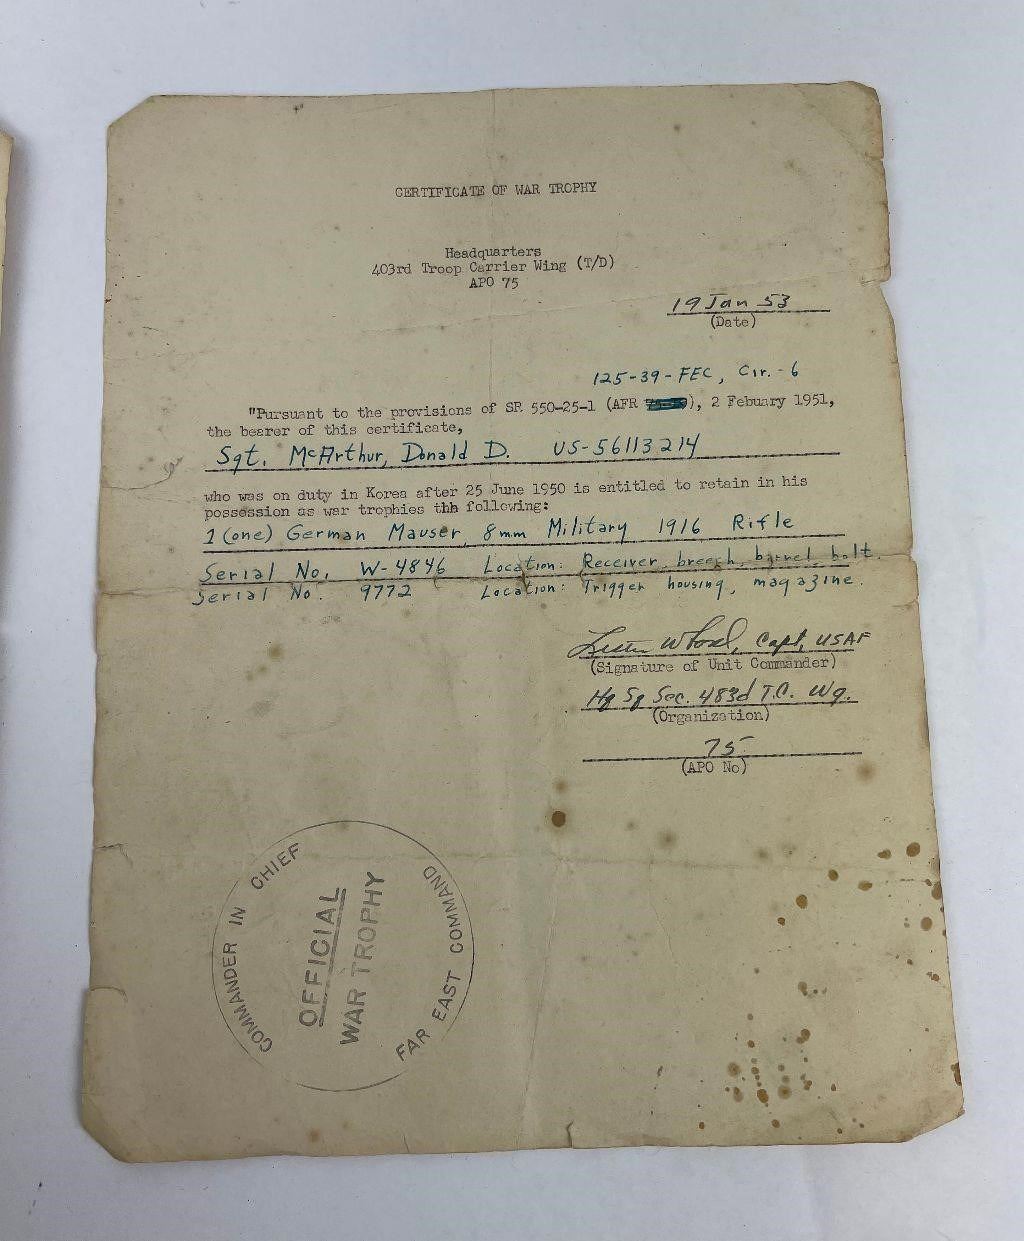 CERTIFICATE OF WAR TROPHY
Headquarters
403rd Troop Carrier Wing (T/D)
APO 75
19 Jan 53
(Date)
125-39-FEC, Cir. - 6
"Pursuant to the provisions of SR 550-25-1 (AFR ), 2 Febuary 1951,
the bearer of this certificate,
Sgt. McArthur, Donald D. US-56113214
who was on duty in Korea after 25 June 1950 is entitled to retain in his
possession as war trophies thh following:
1 (one) German Mauser, 8mm Military 1916 Rifle
Serial No. W-4846 Location: Receiver, breech, barrel, bolt
Serial No. 9772 Location: Trigger housing, magazine.
Capt, USAF
(Signature of Unit Commander)
Hq Sq Sec. 483d T.C. Wg.
(Organization)
75
(APO No)
COMMANDER IN CHIEF
OFFICIAL
WAR TROPHY
FAR EAST COMMAND